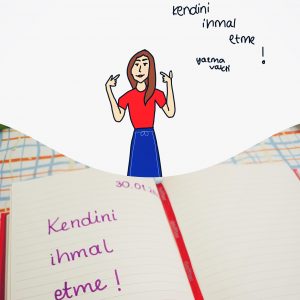 Kendini
ihmal
etme
!
yatma
vakti
30.01.
Kendini
ihmal
etme !